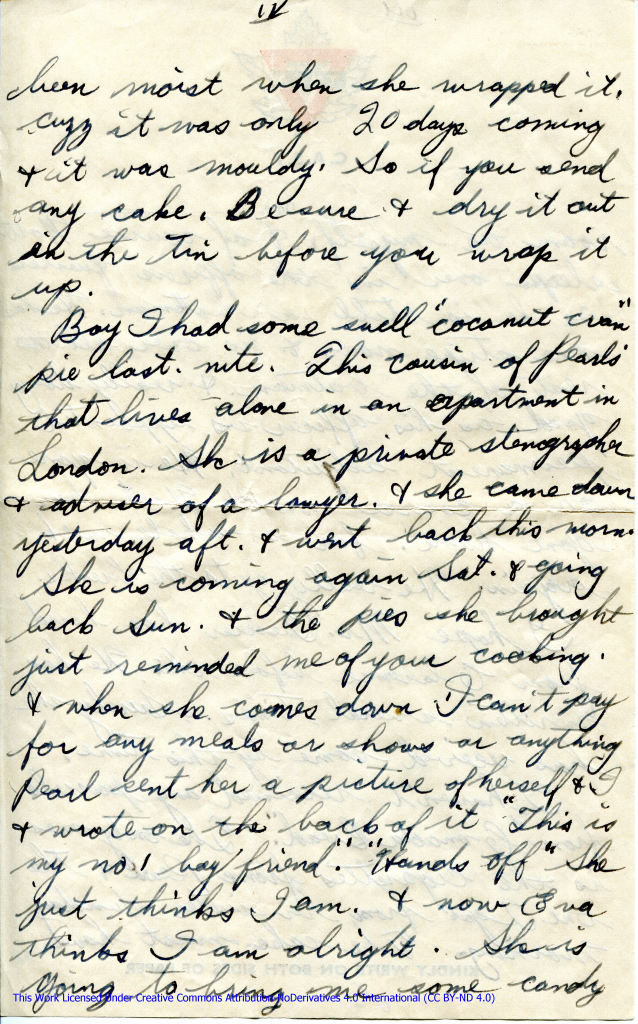 IV
been moist when she wrapped it.
cuzz it was only 20 days coming
& it was mouldy. So if you send
any cake. Be sure & dry it out
in the Tin before you wrap it
up.
Boy I had some swell "coconut cream"
pie last. nite. This cousin of Pearls'
that lives alone in an apartment in
London. She is a private stenographer
& adviser of a lawyer. & she came down
yesterday aft. & went back this morn.
She is coming again Sat. & going
back Sun. & the pies she brought
just reminded me of your cooking.
& when she comes down I can't pay
for any meals or shows or anything
Pearl sent her a picture of herself & I
& wrote on the back of it "This is
my no 1 boy friend". "Hands off" She
just thinks I am. & now Eva
thinks I am alright. She is
going to bring me some candy
KINDLY WRITE ON BOTH SIDES OF PAPER
This Work Licensed Under Creative Commons Attribution-NoDerivatives 4.0 International (CC BY-ND 4.0)